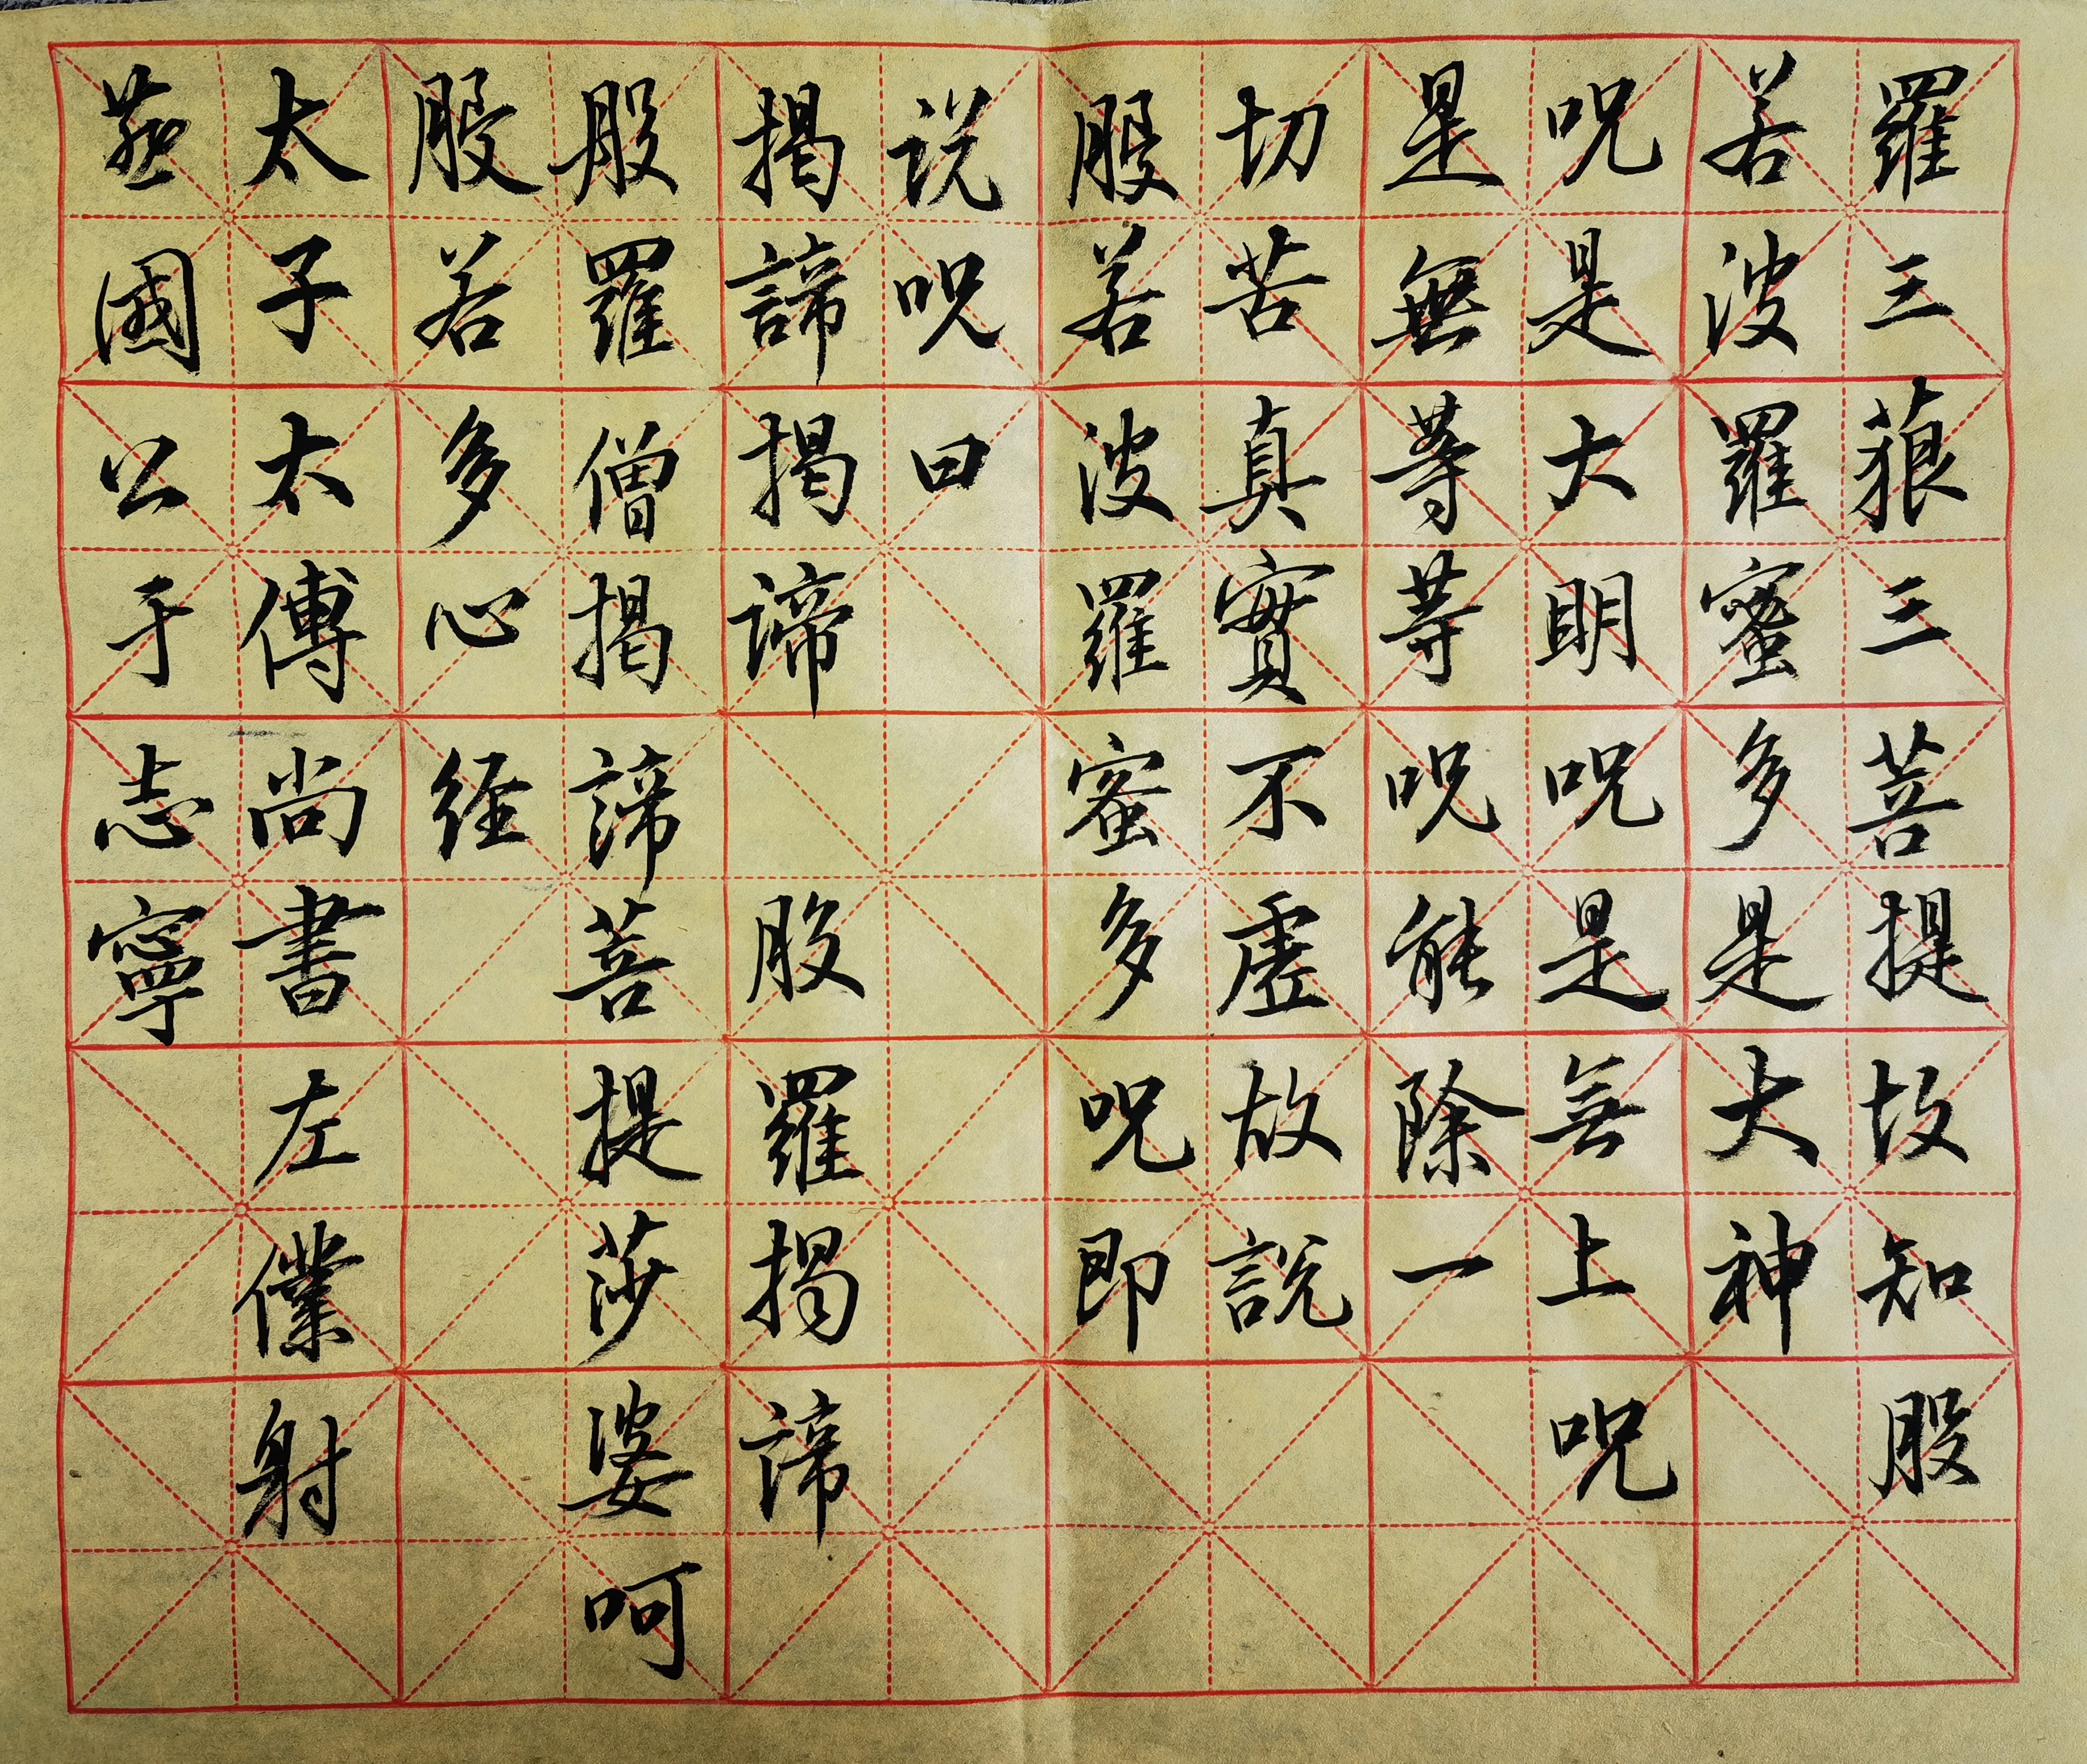 羅三藐三菩提故知般
若波羅蜜多是大神
呪是大明呪是無上呪
是無等等呪能除一
切苦真實不虛故說
般若波羅蜜多呪即
説呪曰
揭諦揭諦 般羅揭諦
般羅僧揭諦菩提莎婆呵
般若多心經
太子太傅尚書左僕射
燕國公于志寧